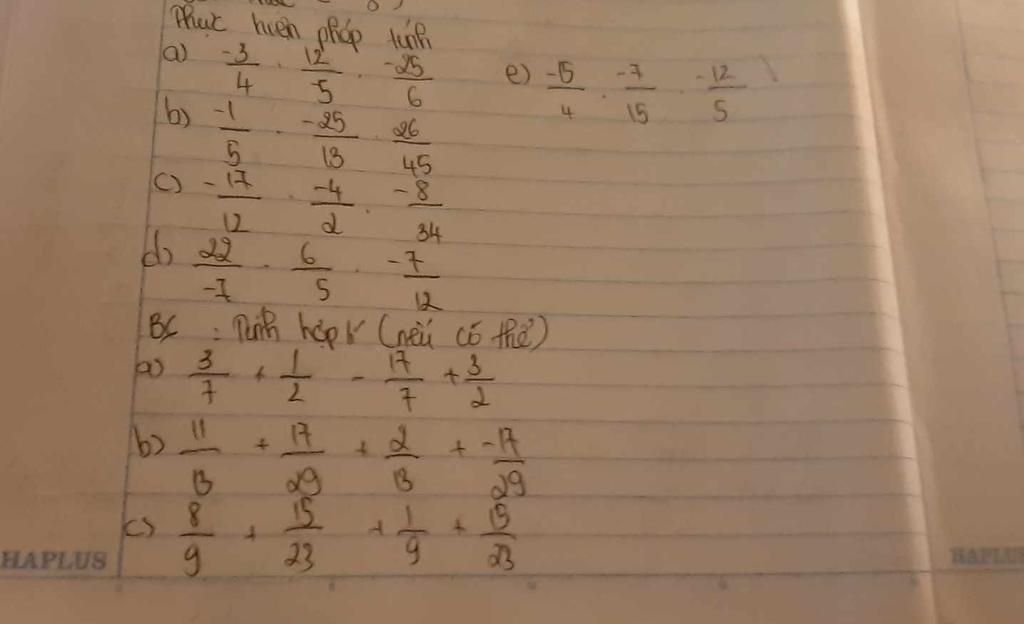 Thực hiện pháp tính
a) -3/4 . 12/-5 . -25/6
e) -15/4 . -7/15 . -12/5
b) -1/5 . -25/13 . 26/45
c) -17/12 . -4/2 . -8/34
d) 22/-7 . 6/5 . -7/12
: Tính hợp lí (nếu có thể)
a) 3/7 + 1/2 - 17/7 + 3/2
b) 11/13 + 17/29 + 2/13 + -17/29
c) 8/9 + 15/23 + 1/9 + 15/23
HAPLUS
HAPLUS